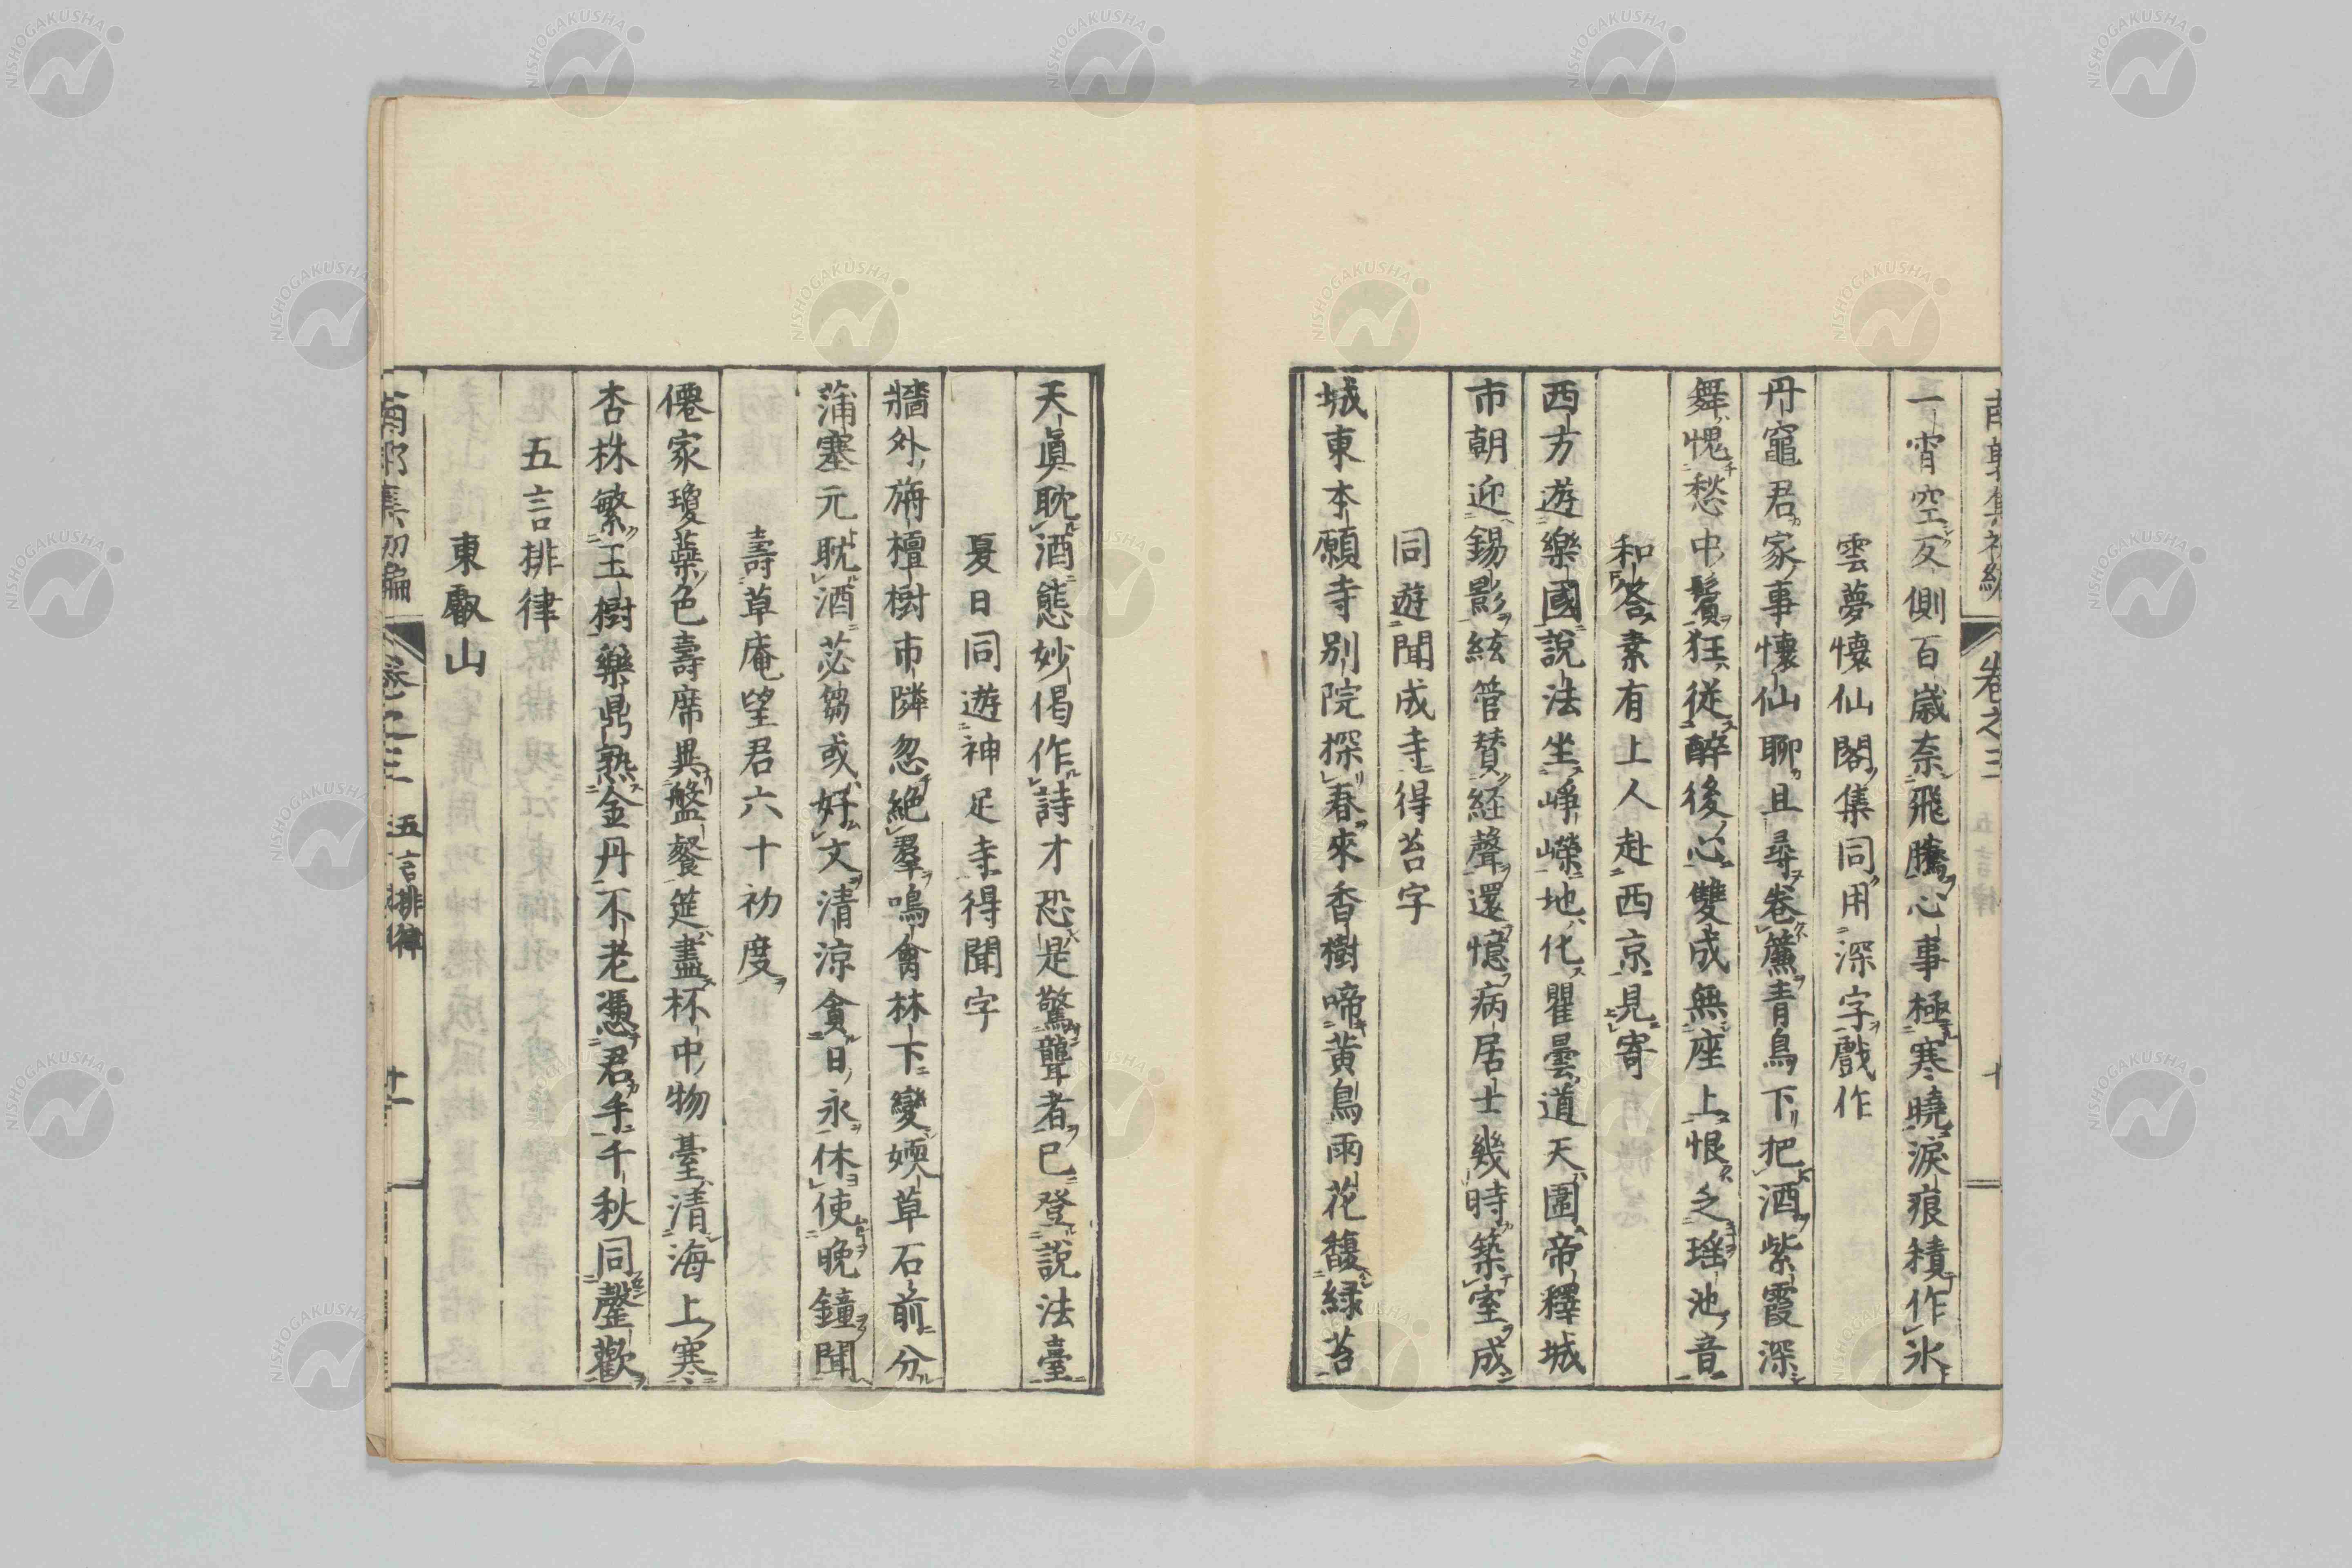 南郭集初編 卷之三 十
一宵空反側百歳奈飛騰心事極寒曉淚痕積作氷
雲夢懷仙閣集同用深字戲作
丹竈君家事懷仙聊且尋卷簾青鳥下把酒紫霞深
舞愧愁中鬢狂從醉後心雙成無座上恨乏瑶池音
和答素有上人赴西京見寄
西方遊樂國說法坐崢嶸地化瞿曇道天圍帝釋城
市朝迎錫影絃管賛経聲還憶病居士幾時築室成
同遊聞成寺得苔字
城東本願寺別院探春來香樹啼黃鳥雨花馥緑苔
天眞耽酒態妙偈作詩才恐是驚聾者已登說法臺
夏日同遊神足寺得聞字
牆外旃檀樹市隣忽絶羣鳴禽林下變媆草石前分
蒲塞元耽酒苾蒭或好文清涼貪日永休使晩鐘聞
壽草庵望君六十初度
僊家瓊蘂色壽席異盤餐筵盡杯中物臺清海上寒
杏株繁玉樹藥鼎熟金丹不老憑君手千秋同罄歡
五言排律
東叡山
南郭集初編 卷之三 五言排律 十一
NISHOGAKUSHA